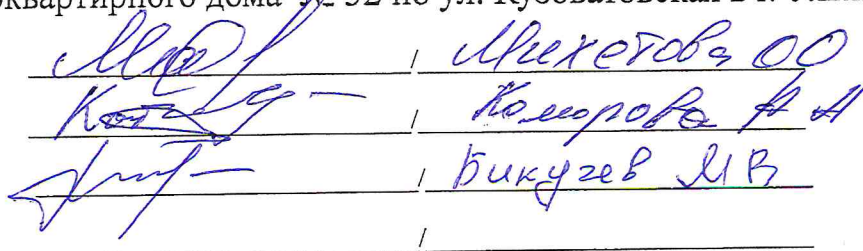 квартирного дома № 32 по ул. Кузоватовская в г.
/ Михетова ОО
/ Коморова А А
/ Бикучев МВ
/